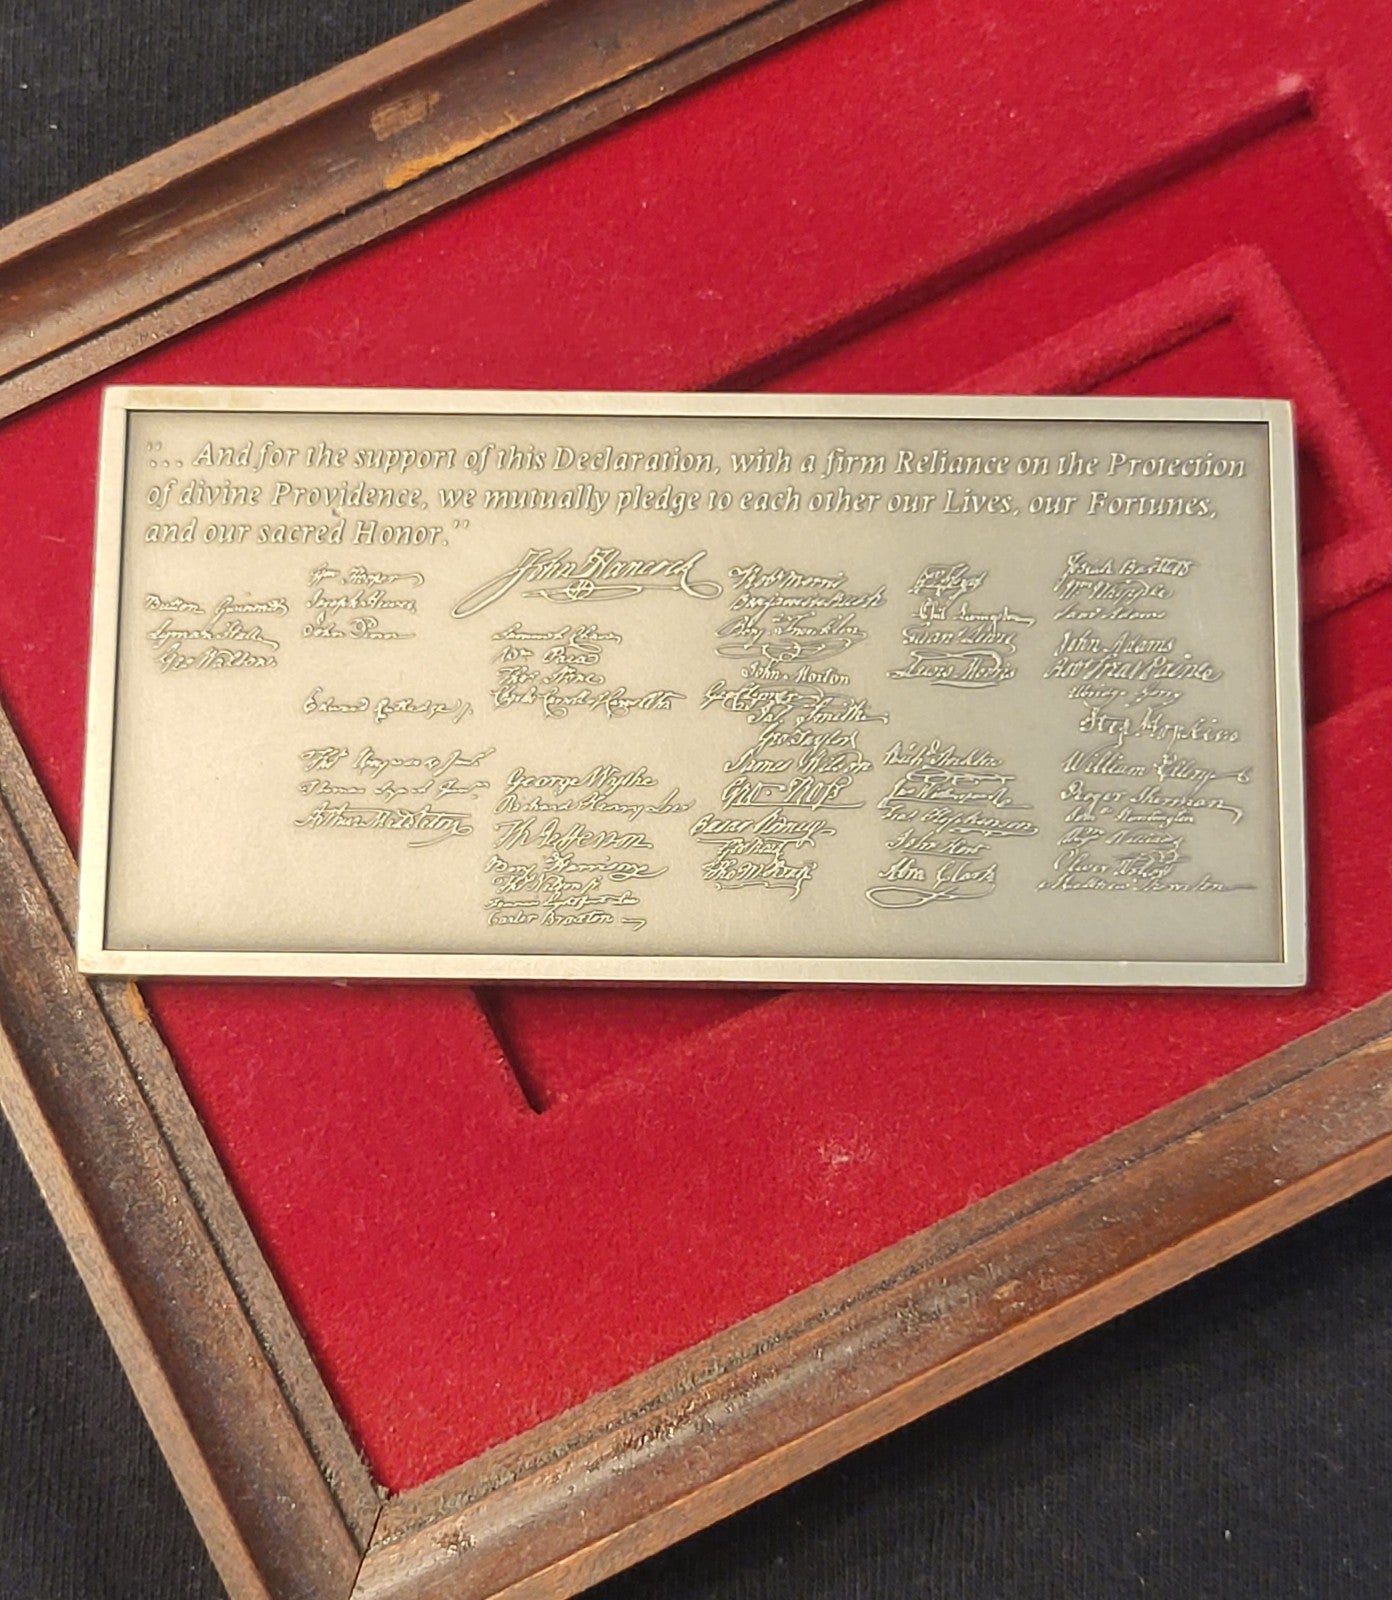 "... And for the support of this Declaration, with a firm Reliance on the Protection
of divine Providence, we mutually pledge to each other our Lives, our Fortunes,
and our sacred Honor."
Button Gwinnett
Lyman Hall
Geo Walton
Wm Hooper
Joseph Hewes
John Penn
Edward Rutledge
Arthur Middleton
John Hancock
Samuel Chase
Wm Paca
Thos Stone
Charles Carroll of Carrollton
George Wythe
Richard Henry Lee
Th Jefferson
Benj Harrison
Ths Nelson jr
Francis Lightfoot Lee
Carter Braxton
Robt Morris
Benjamin Rush
Benj Franklin
John Morton
Geo Clymer
Jas Smith
Geo Taylor
James Wilson
Geo Ross
Caesar Rodney
Geo Read
Tho M:Kean
Phil Livingston
Lewis Morris
Richd Stockton
John Hart
Abra Clark
Josiah Bartlett
Wm Whipple
Saml Adams
John Adams
Robt Treat Paine
Elbridge Gerry
Step Hopkins
William Ellery
Roger Sherman
Saml Huntington
Wm Williams
Oliver Wolcott
Matthew Thornton